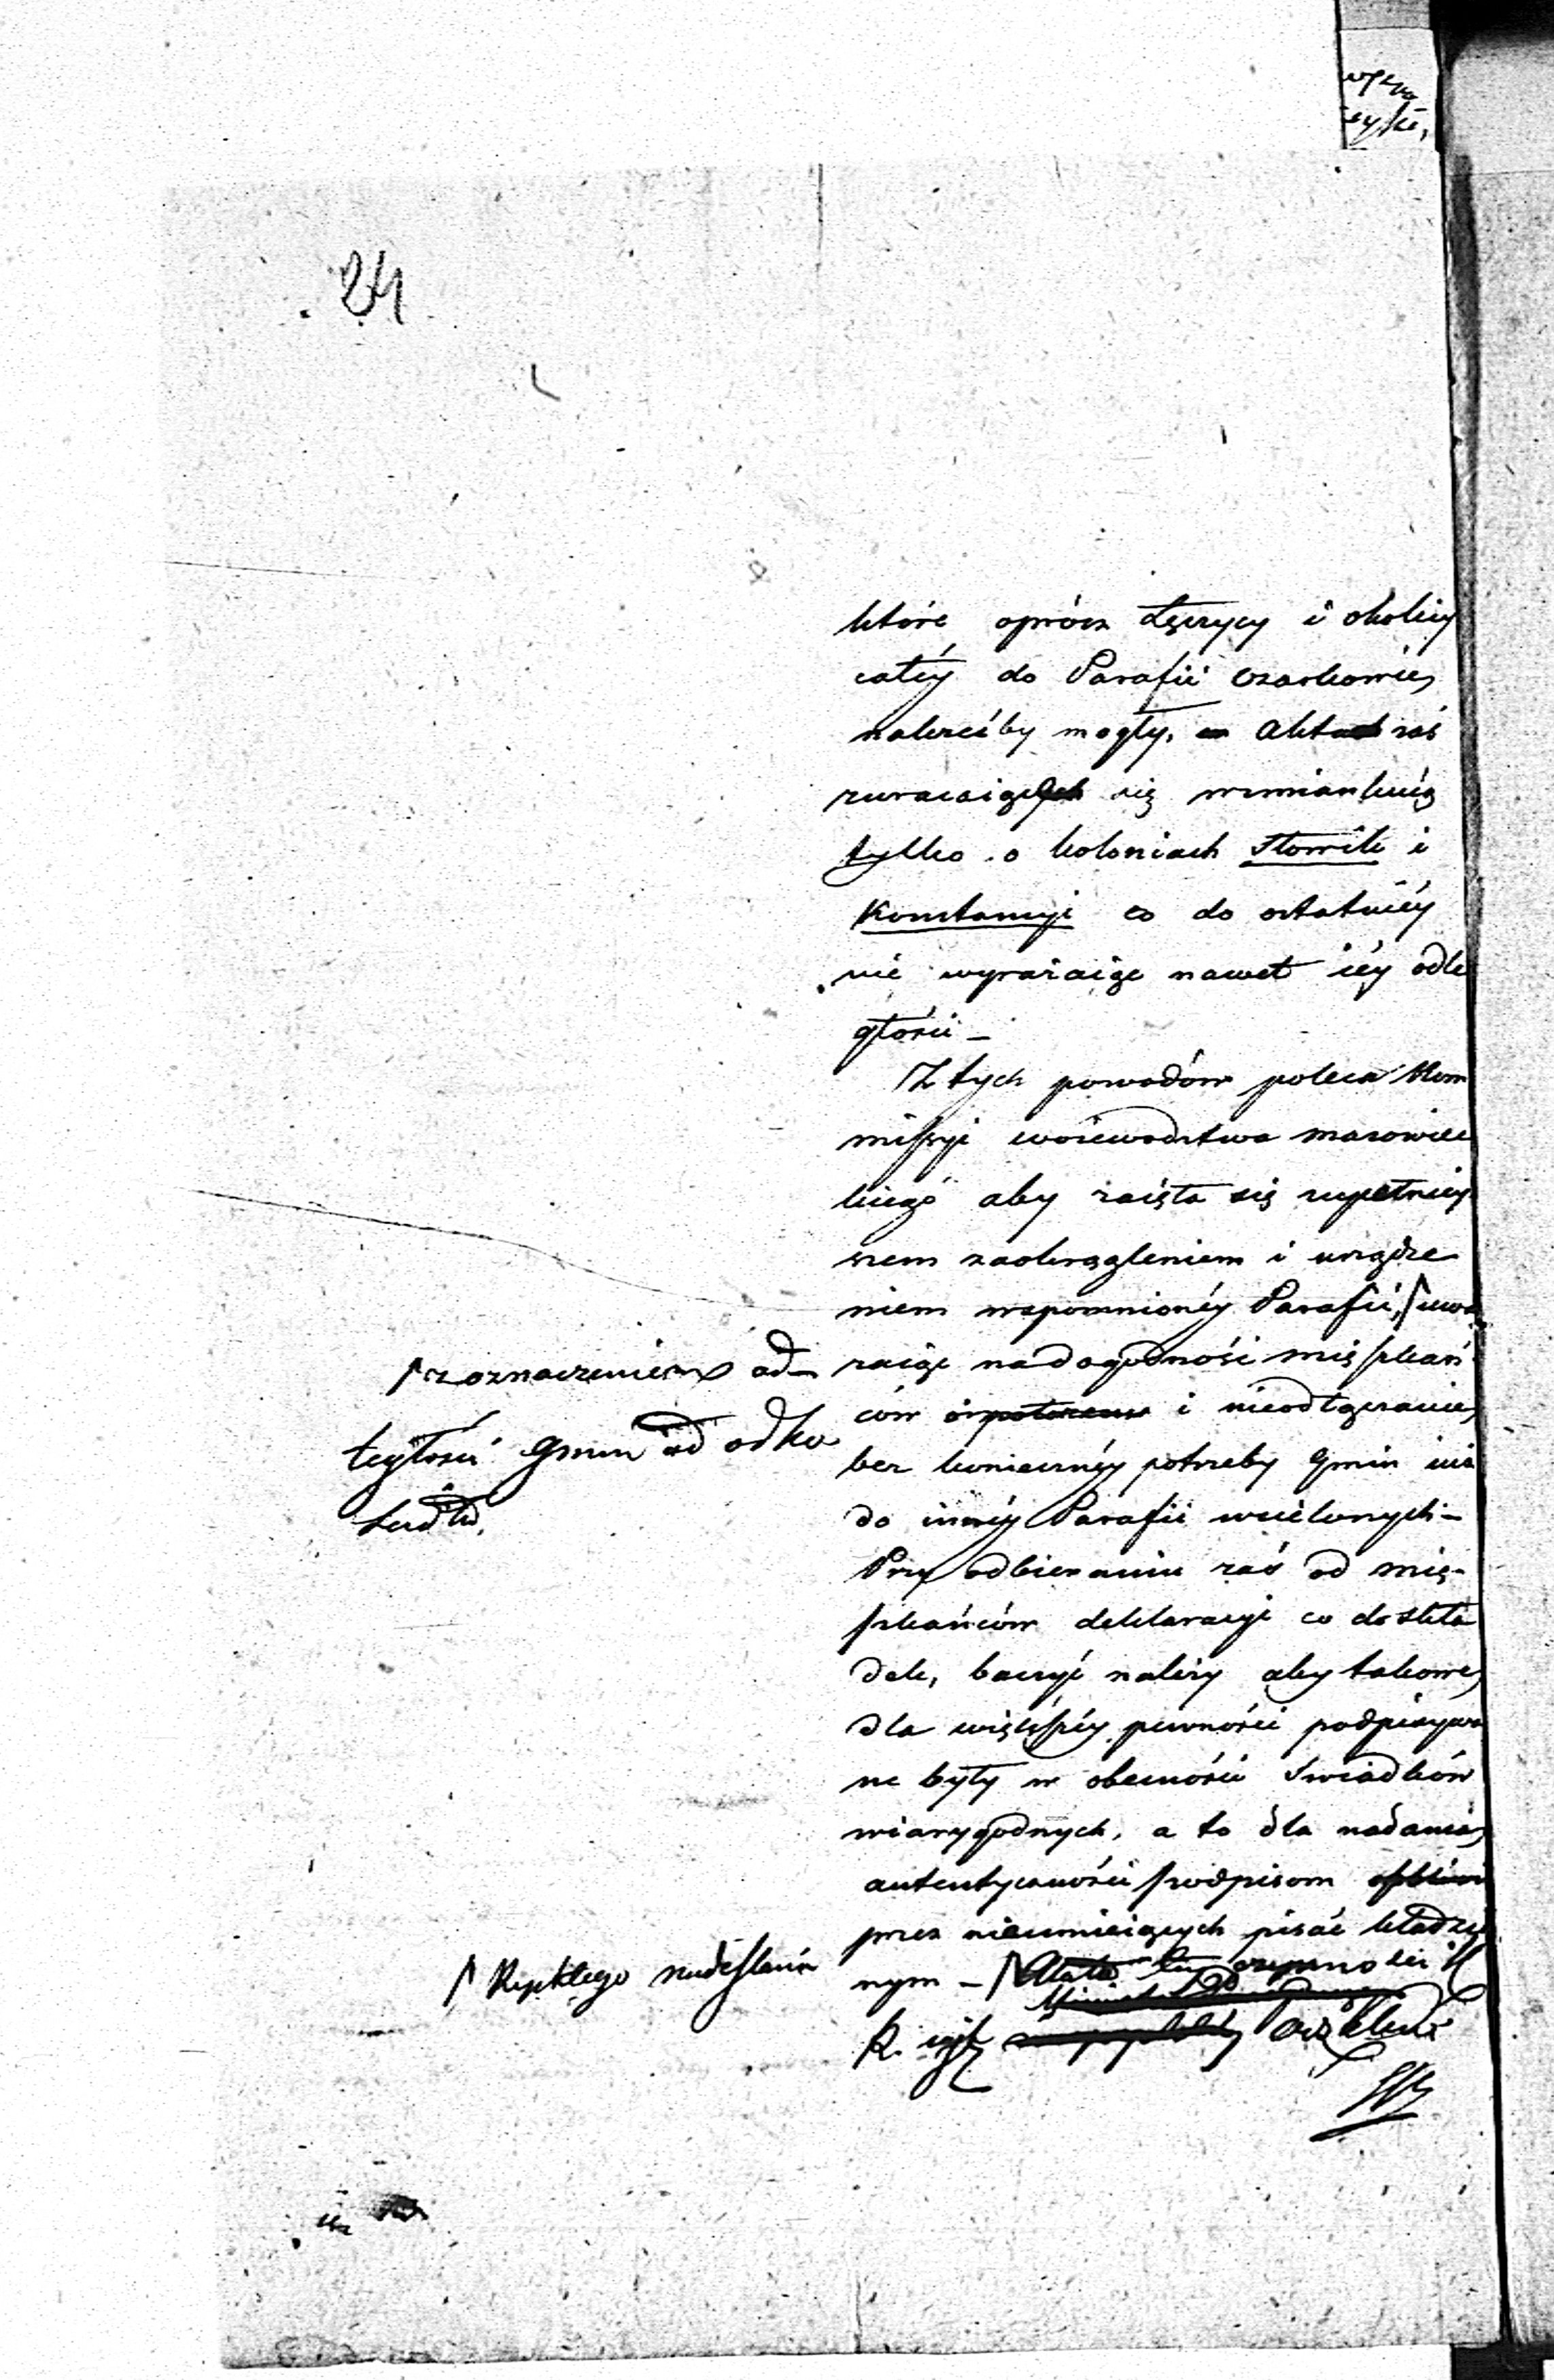 24
które oprócz Łęczycy i okolicy
całéy do Parafii Ozorkowie
należećby mogły, w Aktach zaś
zwracaiących się wzmiankuią
tylko o koloniach Słowik i
Konstancyi co do ostatniéy
nie wyrażaiąc nawet iéy odle
głości _
Z tych powodów poleca Kom
missyi województwa mazowiec
kiego aby zaięła się zupełniey
szem zaokrągleniem i urządze
niem wspomnionéy Parafii, uwa
żaiąc na dogodność mieszkań
ców i nieodłączanie
bez konieczney potrzeby Gmin iuż
do innéy Parafii wcielonych _
Przy odbieraniu zaś od mie-
szkańców deklaracyi co do skła
dek, baczyć należy aby takowe
dla większéy pewności podpisywa
ne były w obecności Swiadków
wiarygodnych, a to dla nadania
autentyczności podpisom
przez nieumieiących pisać kładzio
nym _
z oznaczeniem od-
ległości Gmin od od ko
scioła.
Rychłego nadesłania